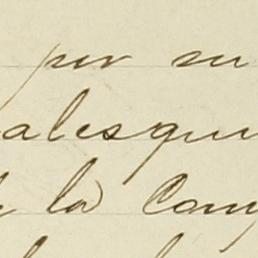 por su
alesqui
la Com